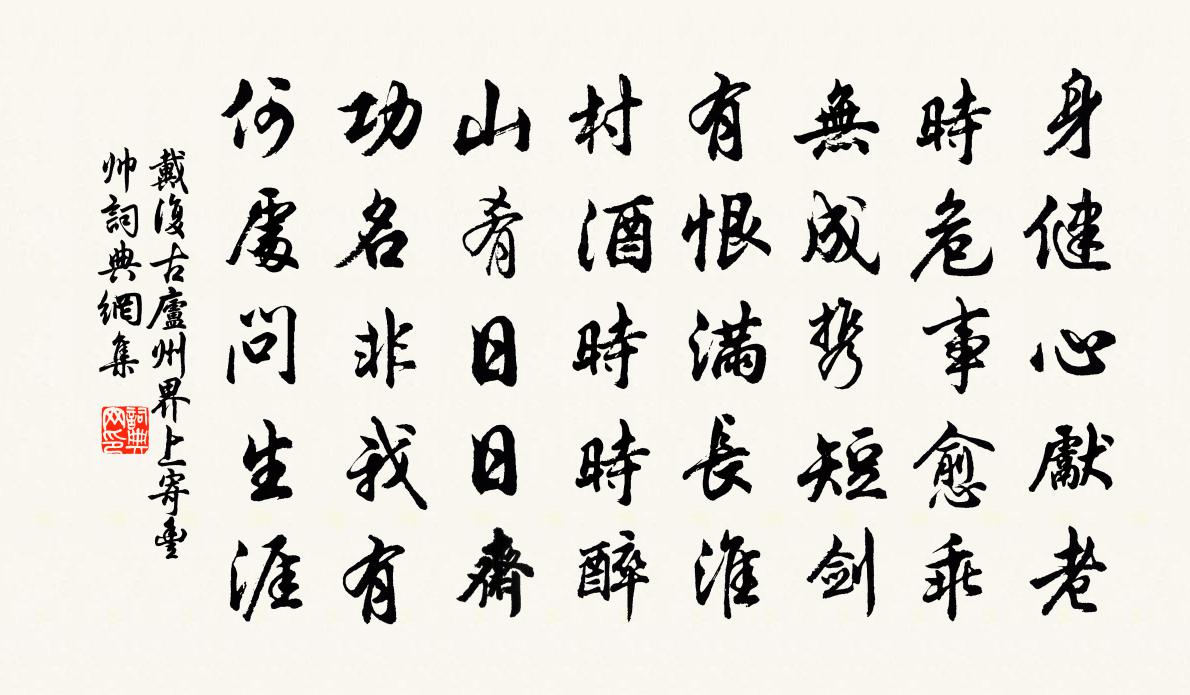 身健心獻老
時危事愈乖
無成携短劍
有恨滿長淮
村酒時時醉
山肴日日齋
功名非我有
何處問生涯
戴復古廬州界上寄豐
帅詞典網集
詞典
网印